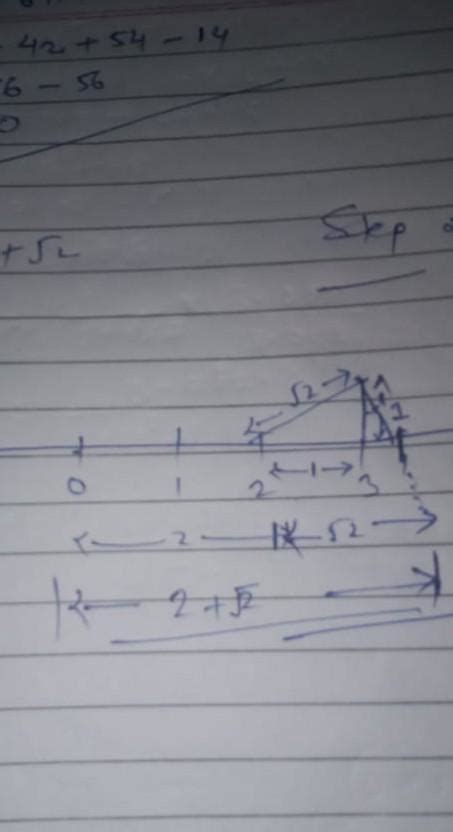 - 42 + 54 - 14
6 - 56
0
+√2
√2
1
0 1 2 1 3
2 √2
2 + √2